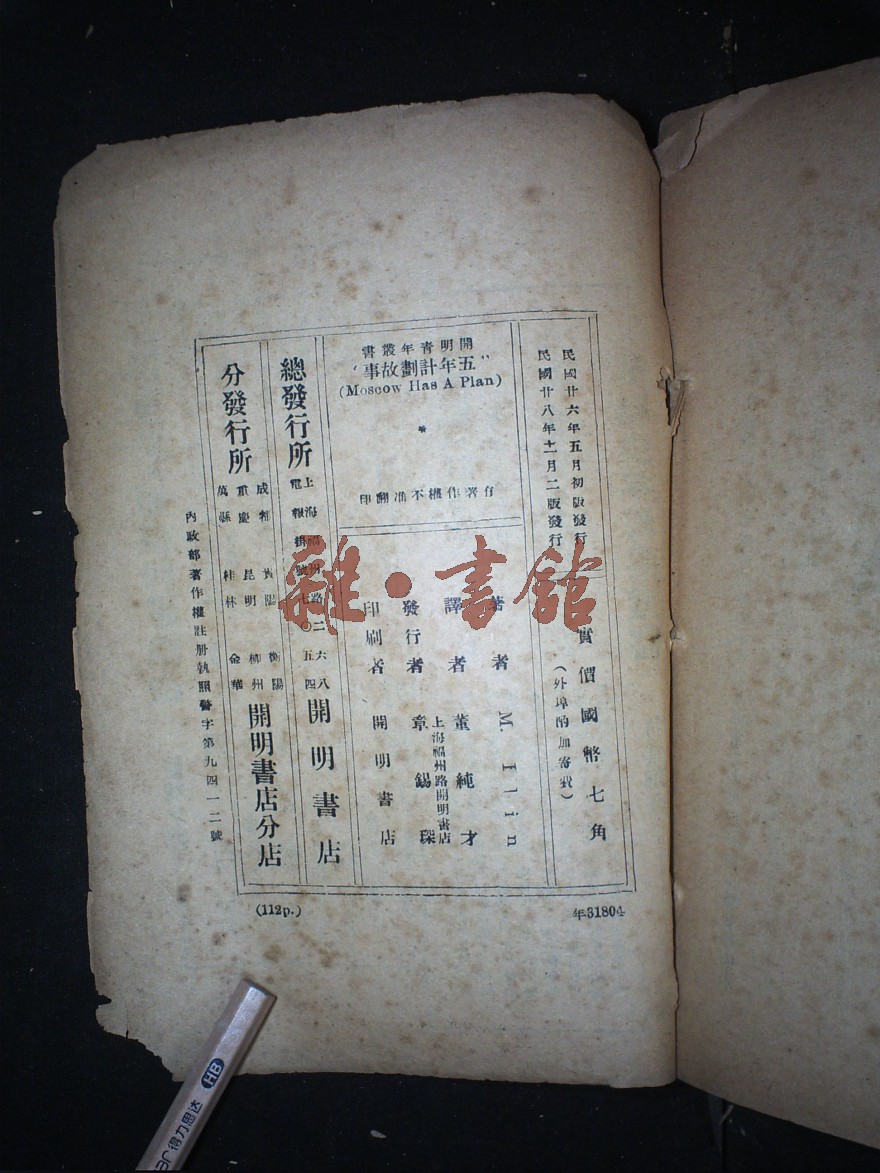 民國廿六年五月初版發行
民國廿八年十一月二版發行
實價國幣七角
(外埠酌加寄費)
開明青年叢書
“五年計劃故事”
(Moscow Has A Plan)
有著作權不准翻印
著者 M. Ilin
譯者 董純才
發行者 章錫琛
上海福州路開明書店
印刷者 開明書店
總發行所
上海福州路二六八
電報掛號七〇五四
開明書店
分發行所
成都 貴陽 衡陽
重慶 昆明 柳州
萬縣 桂林 金華
開明書店分店
內政部著作權註册執照警字第九四一二號
(112p.)
年31804
雜·書館
HB
得力思达